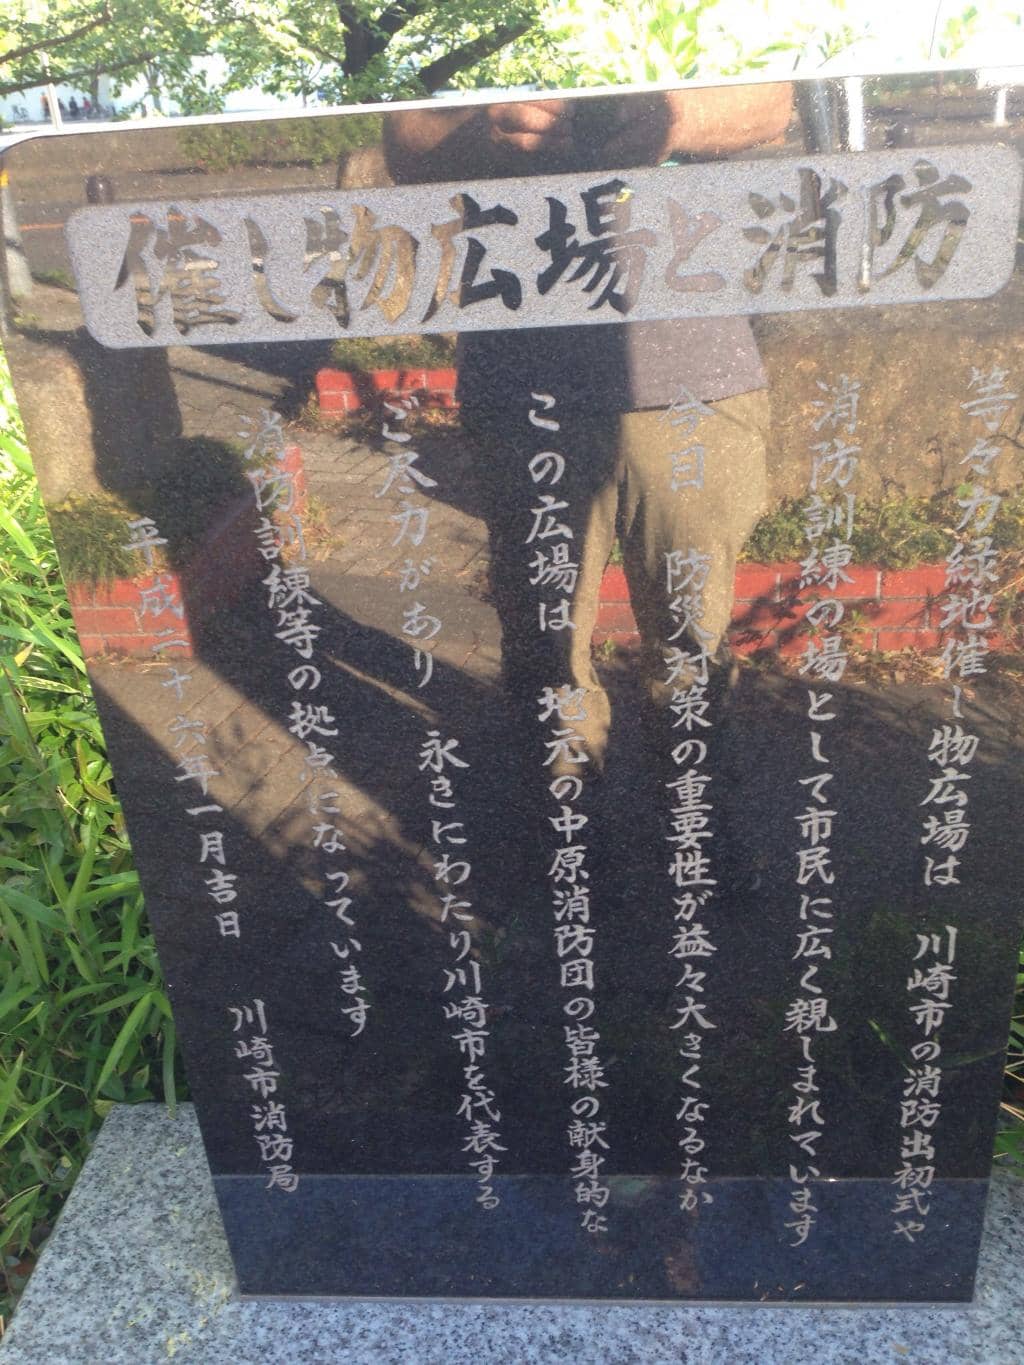 催し物広場と消防
等々力緑地催し物広場は　川崎市の消防出初式や
消防訓練の場として市民に広く親しまれています
今日　防災対策の重要性が益々大きくなるなか
この広場は　地元の中原消防団の皆様の献身的な
ご尽力があり　永きにわたり川崎市を代表する
消防訓練等の拠点になっています
平成二十六年一月吉日　川崎市消防局